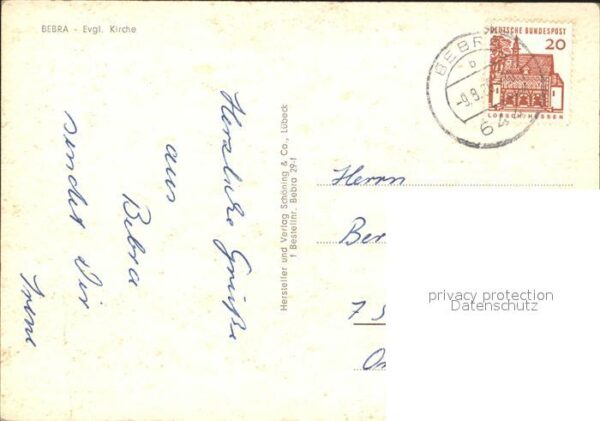 BEBRA - Evgl. Kirche
Herzliche Grüße
aus
Bebra
sendet Dir
Irene
Hersteller und Verlag Schöning & Co., Lübeck
1 Bestellnr. Bebra 29-1
BEBRA
b
-9.8.
64
DEUTSCHE BUNDESPOST
20
LORSCH/HESSEN
Herrn
Ber
7 S
privacy protection
Datenschutz